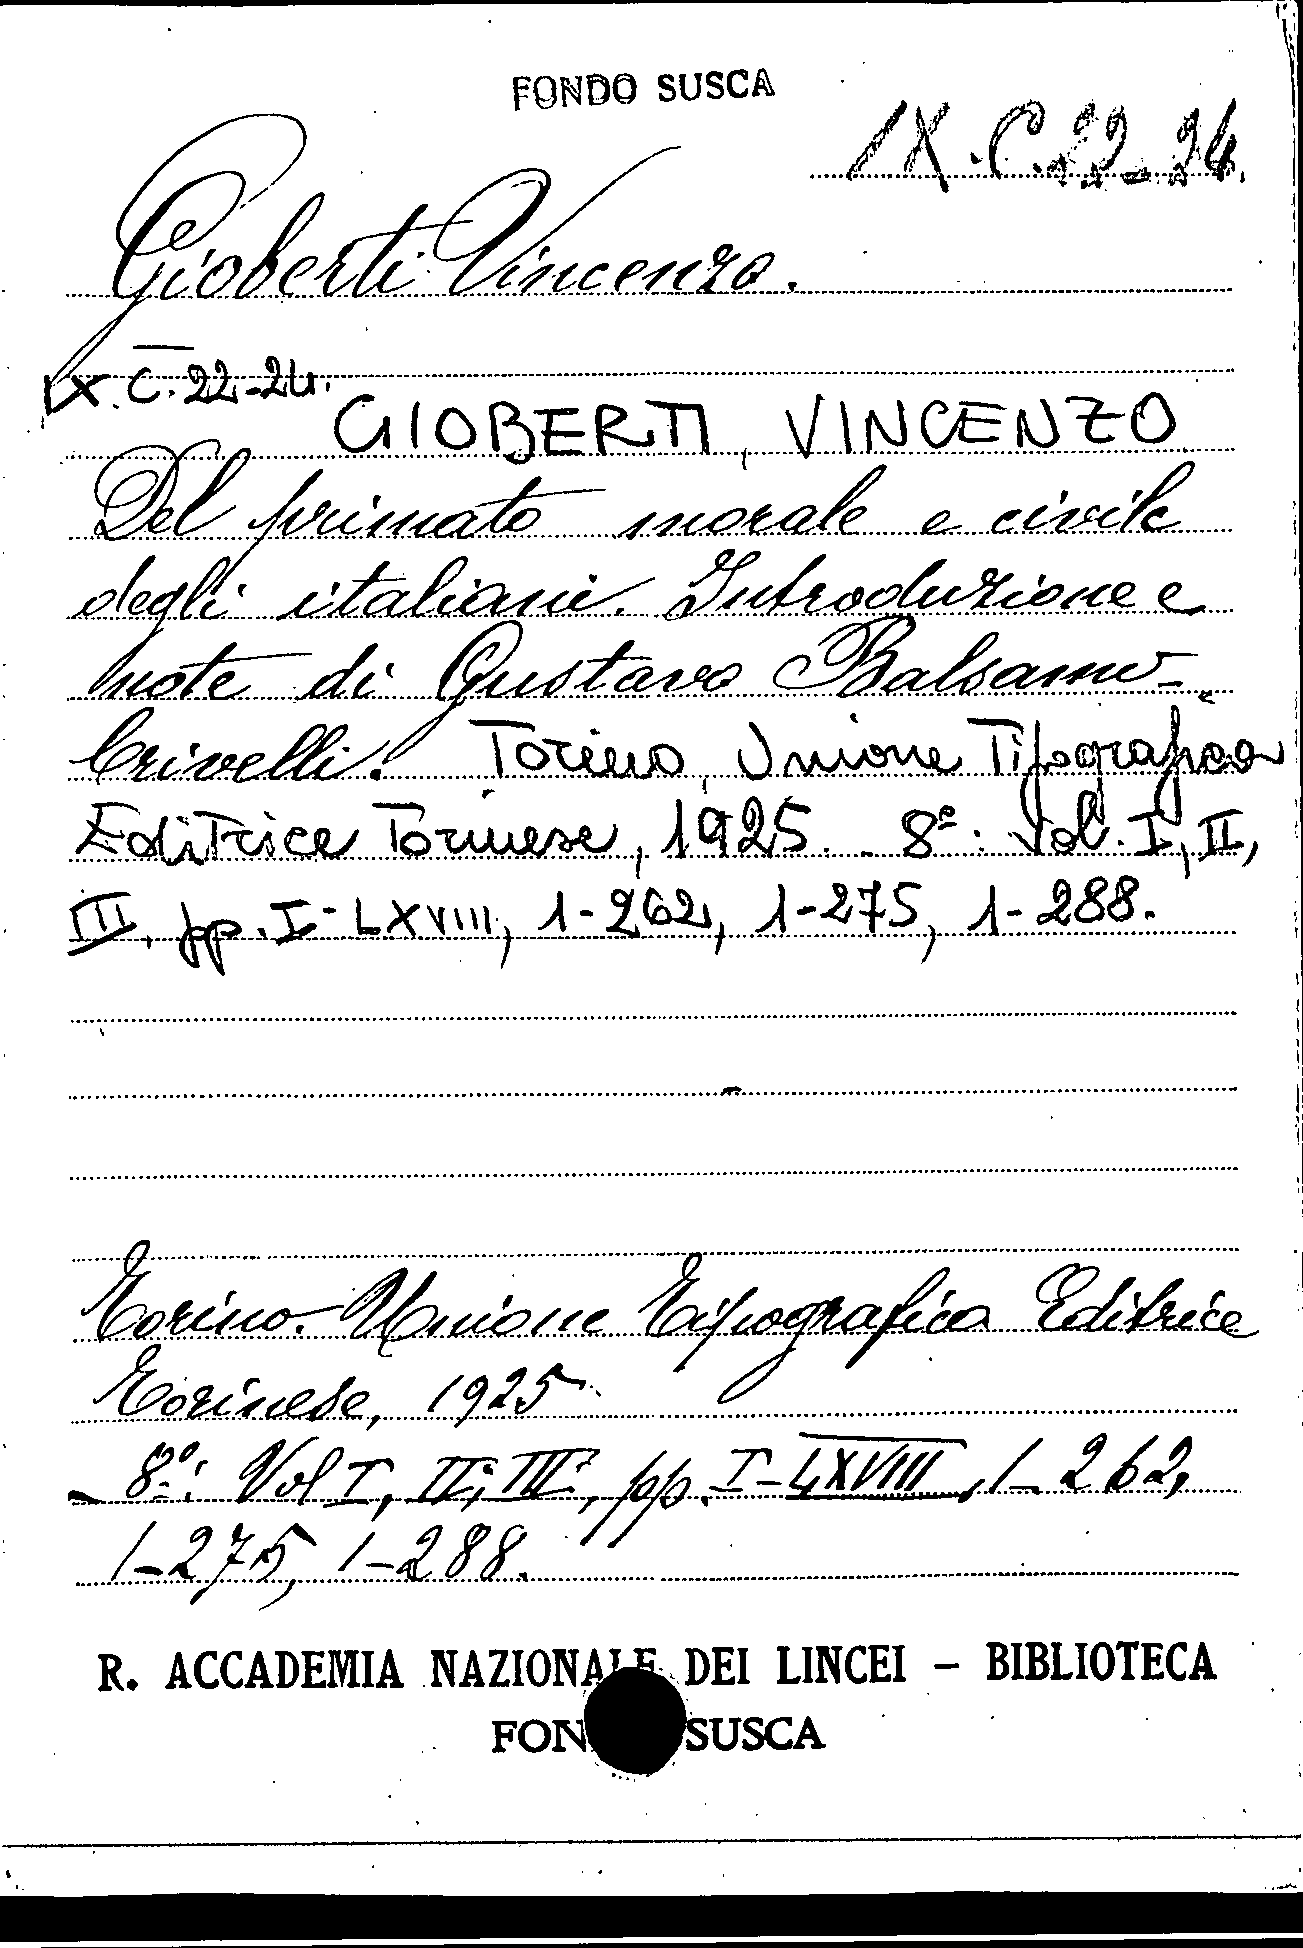 FONDO SUSCA
IX.C.22-24.
Gioberti Vincenzo.
IX.C.22-24.
GIOBERTI, VINCENZO
Del primato morale e civile
degli italiani. Introduzione e
note di Gustavo Balsamo-
Crivelli. Torino, Unione Tipografica
Editrice Torinese, 1925. 8º: Vol. I, II,
III, pp. I-LXVIII, 1-262, 1-275, 1-288.
Torino. Unione Tipografica Editrice
Torinese, 1925
8º: Vol I, II, III, pp. I-LXVIII, 1-262,
1-275, 1-288.
R. ACCADEMIA NAZIONALE DEI LINCEI – BIBLIOTECA
FON SUSCA